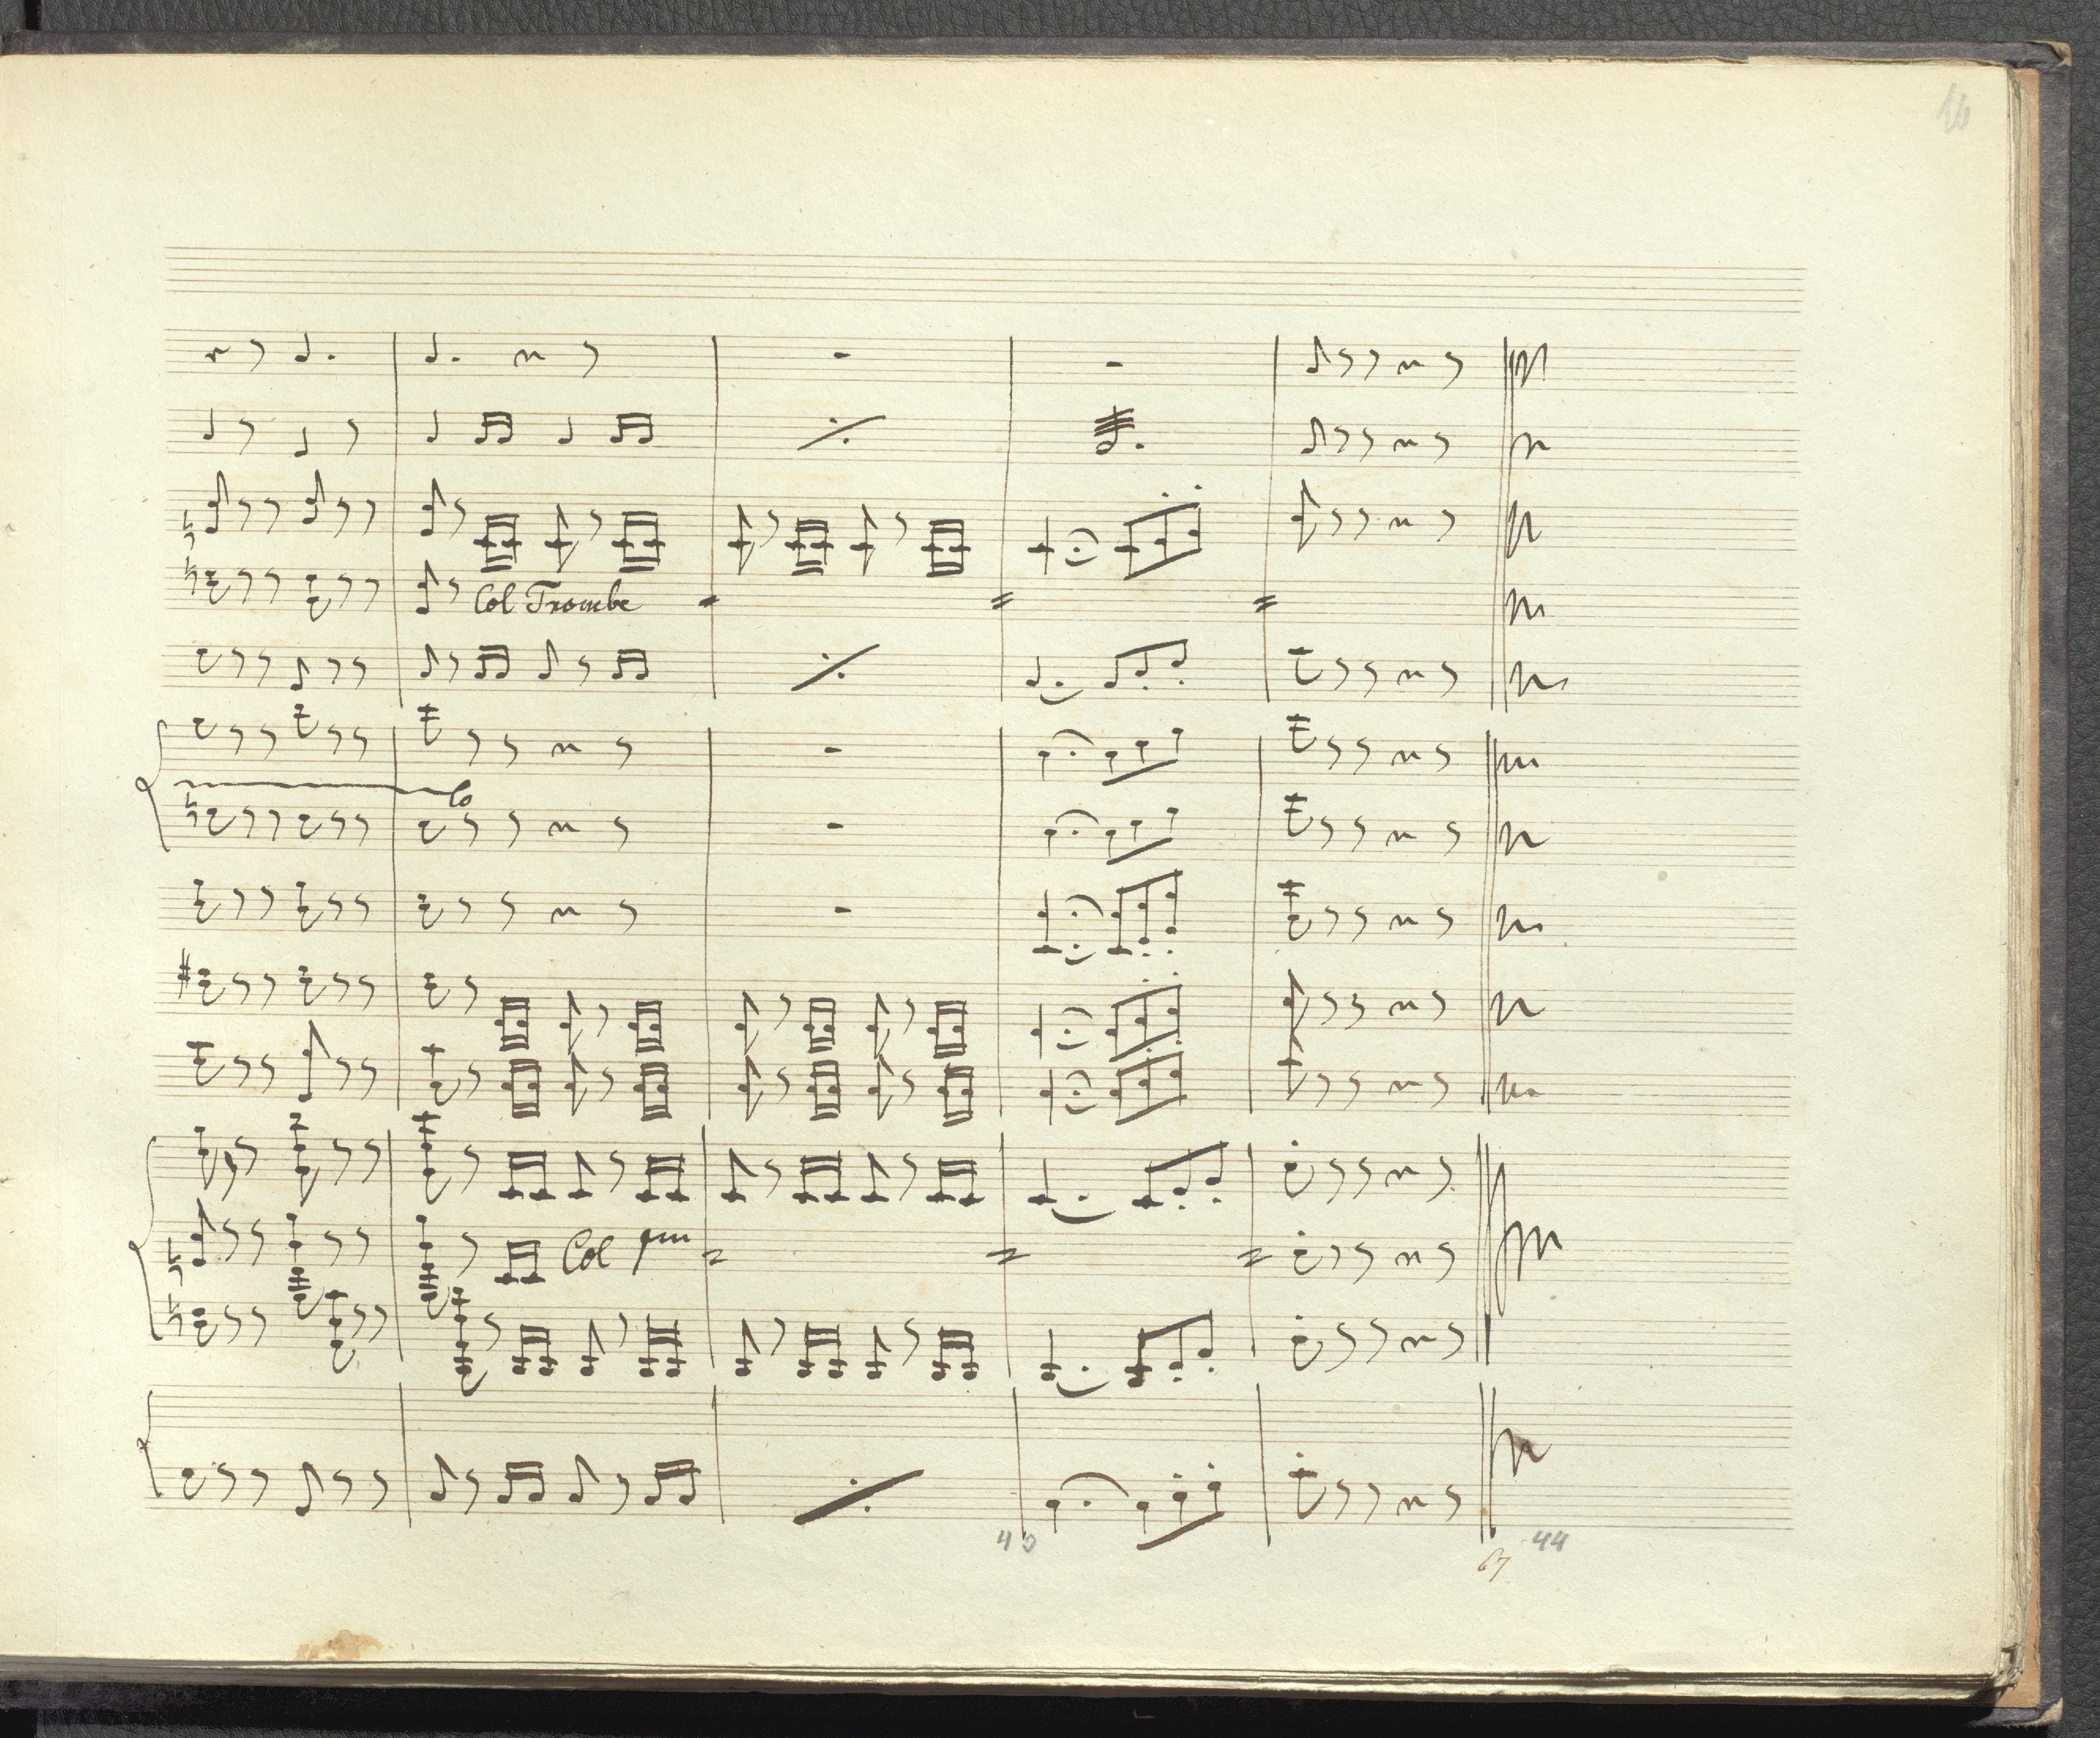 16
Col Trombe
Col pmo
67 44